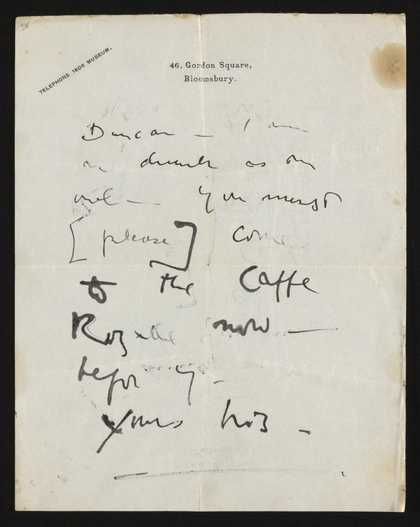 TELEPHONE 1608 MUSEUM.
46, Gordon Square,
Bloomsbury.
Duncan — I am
as drunk as an
owl — you must
[please] come
to the Caffe
now —
Yours